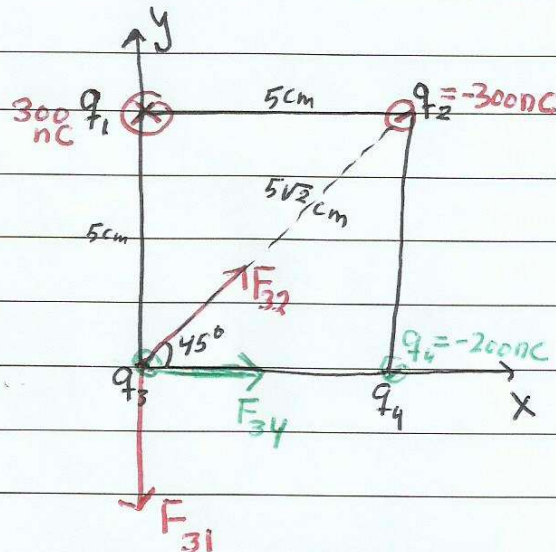 y
300 nC
q₁
5cm
q₂ = -300nC
5√2 cm
5cm
F₃₂
45°
q₄ = -200nC
q₃
q₄
x
F₃₄
F₃₁